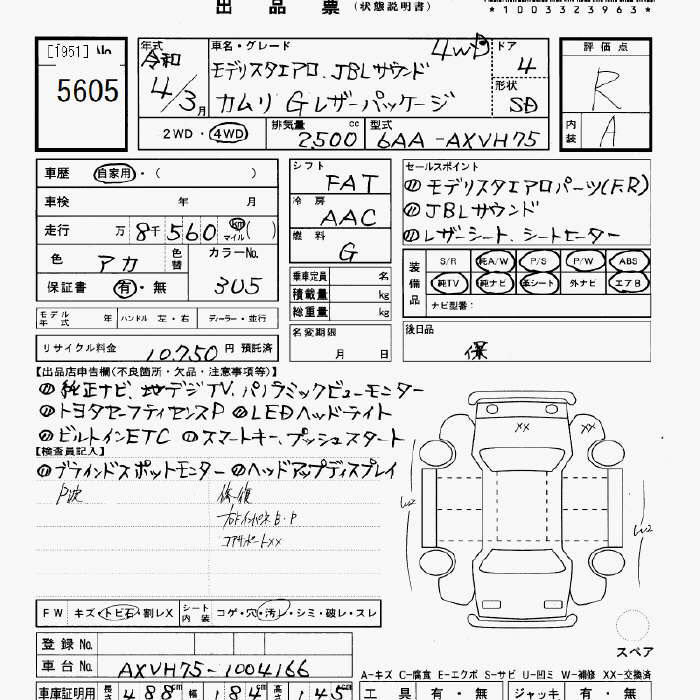 出品票 (状態説明書)
*1003323963*
[1951] No
5605
年式 車名・グレード 4WD ドア 評価点
令和 モデリスタエアロ、JBLサウンド 4 R
4/3月 カムリ Gレザーパッケージ 形状 SD
2WD・4WD 排気量 2500 cc 型式 6AA-AXVH75 内装 A
車歴 自家用・( )
車検 年 月
走行 万 8千560 km マイル ( )
色 アカ 色替 カラーNo. 3U5
保証書 有・無
シフト FAT
冷房 AAC
燃料 G
乗車定員 名
積載量 kg
総重量 kg
セールスポイント
モデリスタエアロパーツ(F.R)
JBLサウンド
レザーシート、シートヒーター
装備品 S/R 純A/W P/S P/W ABS
純TV 純ナビ 革シート 外ナビ エアB
ナビ型番:
モデル年式 年 ハンドル 左・右 ディーラー・並行
リサイクル料金 10.750 円 預託済
名変期限 月 日
後日品 保
【出品店申告欄(不良箇所・欠品・注意事項等)】
純正ナビ、地デジTV、パノラミックビューモニター
トヨタセーフティセンスP LEDヘッドライト
ビルトインETC スマートキー、プッシュスタート
【検査員記入】
ブラインドスポットモニター ヘッドアップディスプレイ
P波 修復
コアサポートXX
XX XX
W2 W2
FW キズ・トビ石・割レX シート内装 コゲ・穴・汚レ・シミ・破レ・スレ
登録 No.
車台 No. AXVH75-1004166
スペア
A-キズ C-腐食 E-エクボ S-サビ U-凹ミ W-補修 XX-交換済
車庫証明用 長さ 488cm 幅 184cm 高さ 145cm 工具 有・無 ジャッキ 有・無